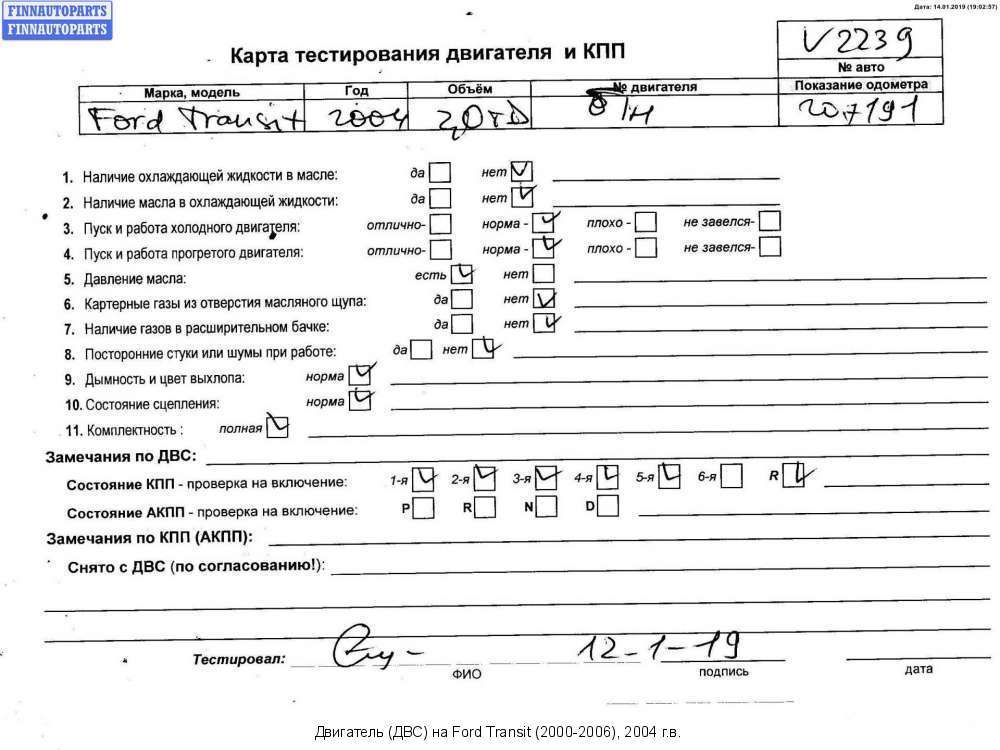 FINNAUTOPARTS
FINNAUTOPARTS
Дата: 14.01.2019 (19:02:57)
Карта тестирования двигателя и КПП
V2239
№ авто
Марка, модель Год Объём № двигателя Показание одометра
Ford Transit 2004 2,0TD Б/Н 207191
1. Наличие охлаждающей жидкости в масле: да нет
2. Наличие масла в охлаждающей жидкости: да нет
3. Пуск и работа холодного двигателя: отлично- норма - плохо - не завелся-
4. Пуск и работа прогретого двигателя: отлично- норма - плохо - не завелся-
5. Давление масла: есть нет
6. Картерные газы из отверстия масляного щупа: да нет
7. Наличие газов в расширительном бачке: да нет
8. Посторонние стуки или шумы при работе: да нет
9. Дымность и цвет выхлопа: норма
10. Состояние сцепления: норма
11. Комплектность : полная
Замечания по ДВС:
Состояние КПП - проверка на включение: 1-я 2-я 3-я 4-я 5-я 6-я R
Состояние АКПП - проверка на включение: P R N D
Замечания по КПП (АКПП):
Снято с ДВС (по согласованию!):
Тестировал: 12-1-19
ФИО подпись дата
Двигатель (ДВС) на Ford Transit (2000-2006), 2004 г.в.